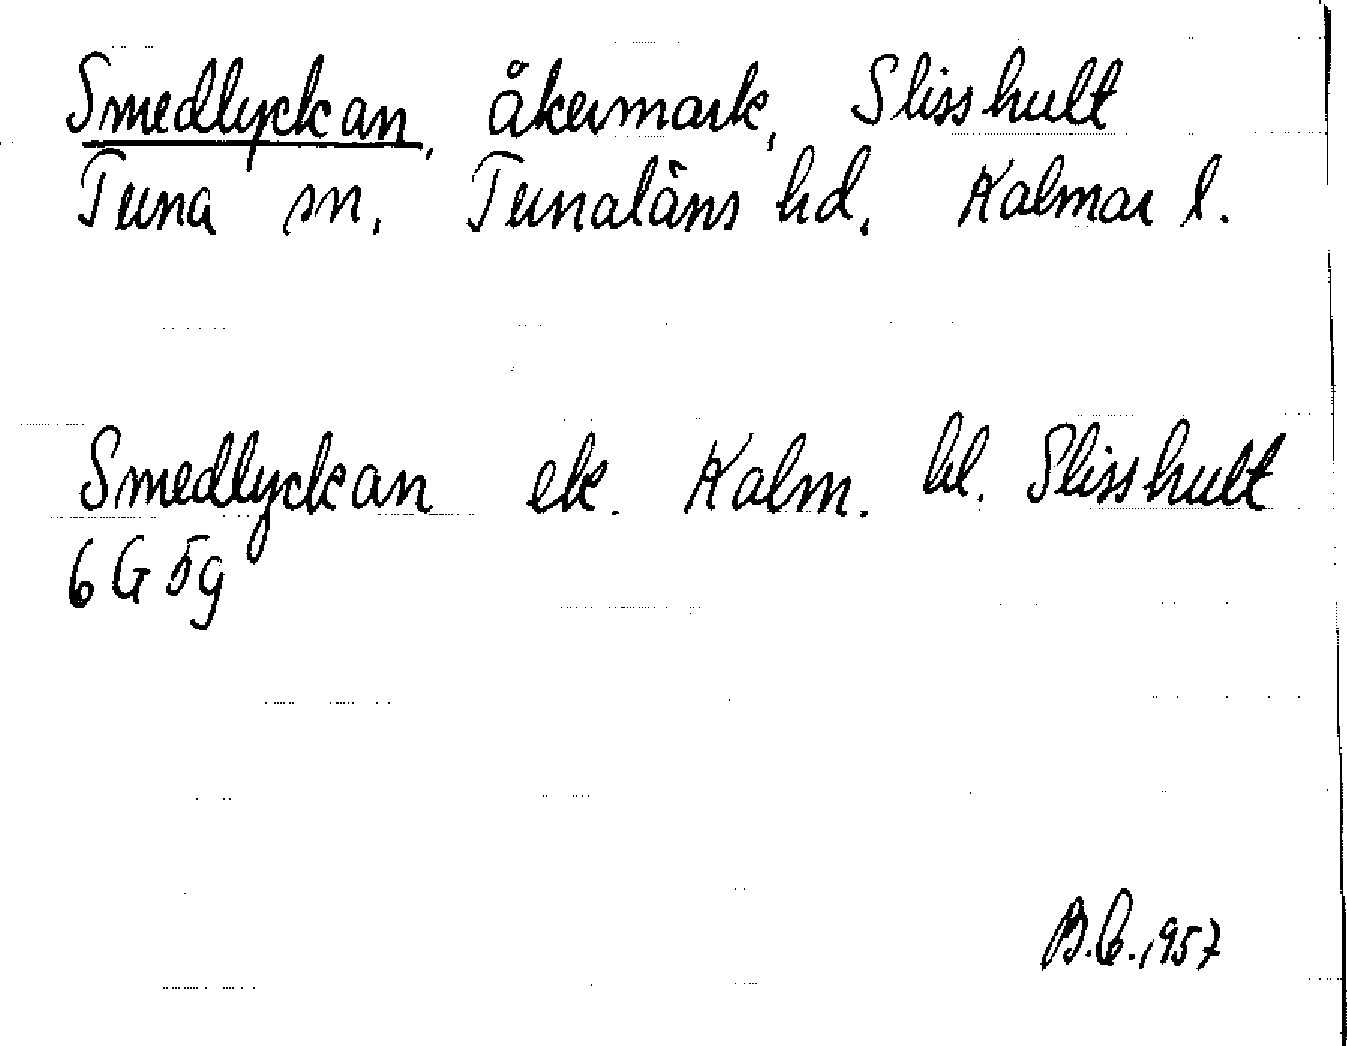 Smedlyckan, åkermark, Slisshult
Tuna sn, Tunaläns hd, Kalmar l.
Smedlyckan ek. Kalm. bl. Slisshult
6 G 5g
B.C. 1957